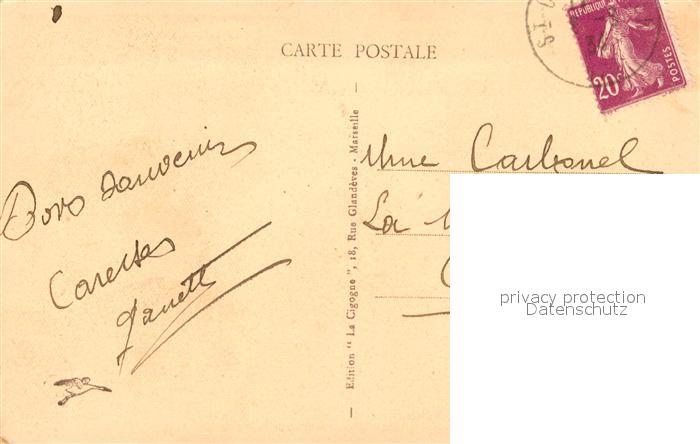 CARTE POSTALE
REPUBLIQUE
20c
POSTES
Bons souvenirs
Caresses
Edition " La Cigogne ", 18, Rue Glandèves - Marseille
Mme Carbonel
La
privacy protection
Datenschutz